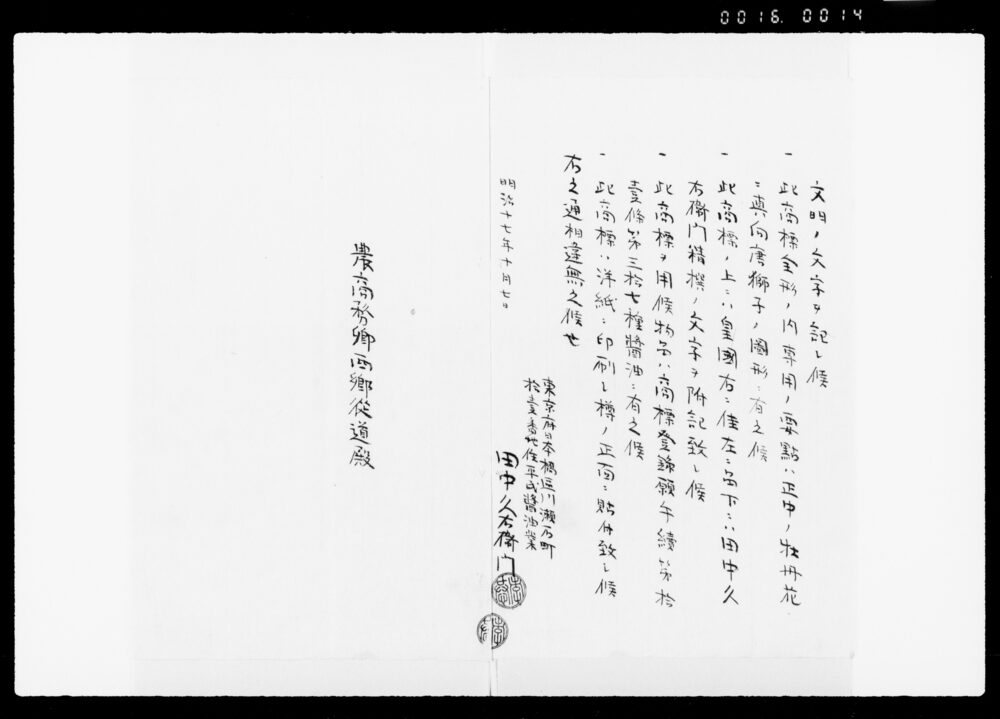 0016. 0014
文明ノ文字ヲ記シ候
一 此商標全形ノ内専用ノ要點ハ正中ノ牡丹花
ニ真向唐獅子ノ圖形ニ有之候
一 此商標ノ上ニハ皇國右ニ佳左ニ品下ニハ田中久
右衛門精撰ノ文字ヲ附記致シ候
一 此商標ヲ用候物品ハ商標登録願手續第拾
壹條第三拾七種醬油ニ有之候
一 此商標ハ洋紙ニ印刷シ樽ノ正面ニ貼付致シ候
右之通相違無之候也
明治十七年十月七日
東京府日本橋區川瀬石町
拾壹番地住平民醬油業
田中久右衛門
農商務卿西郷従道殿